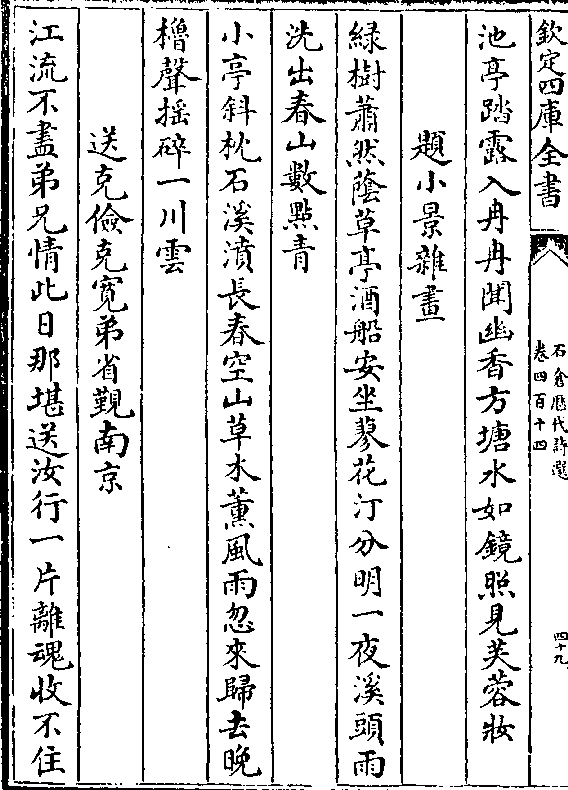 欽定四庫全書
石倉歷代詩選
卷四百十四
四十九
池亭踏露入冉冉聞幽香方塘水如鏡照見芙蓉妝
題小景雜畫
緑樹蕭然蔭草亭酒船安坐蓼花汀分明一夜溪頭雨
洗出春山數點青
小亭斜枕石溪濆長春空山草木薫風雨忽來歸去晚
櫓聲揺碎一川雲
送克儉克寛弟省覲南京
江流不盡弟兄情此日那堪送汝行一片離魂收不住